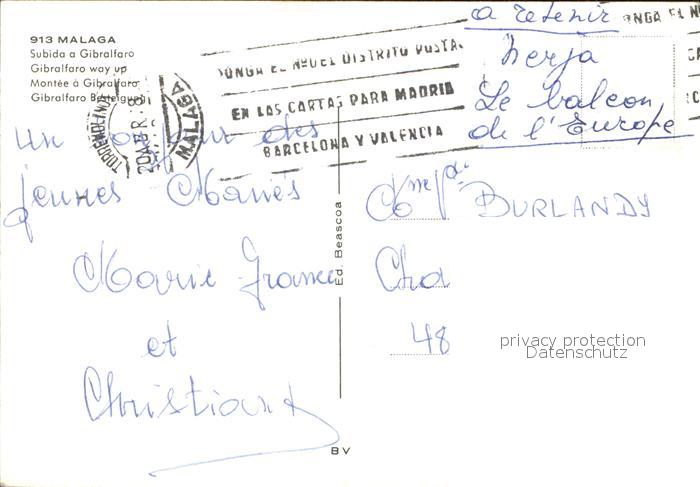 913 MALAGA
Subida a Gibralfaro
Gibralfaro way up
Montée à Gibralfaro
Gibralfaro
TORREMOLINOS
MALAGA
PONGA EL Nº DEL DISTRITO POSTAL
EN LAS CARTAS PARA MADRID
BARCELONA Y VALENCIA
PONGA EL Nº
a retenir
Nerja
Le balcon
de l'Europe
Un bonjour des
jeunes Mariés
Marie France
et
Christian
Ed. Beascoa
BURLANDY
48
privacy protection
Datenschutz
BV